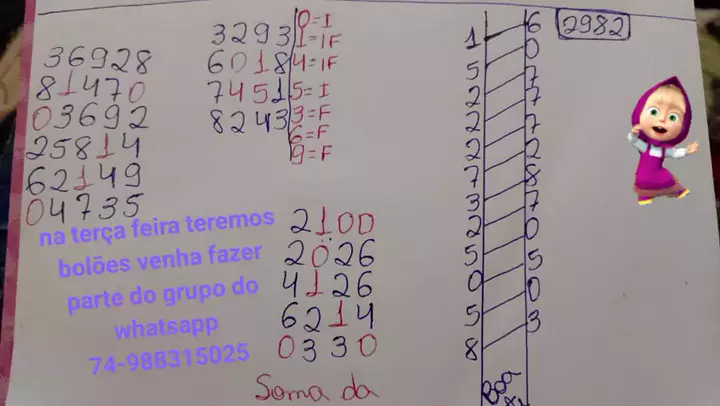 36928
81470
03692
25814
62149
04735
3293
6018
7451
8243
0=I
1=IF
4=IF
5=I
3=F
6=F
9=F
2100
2026
4126
6214
0330
Soma da
1
5
2
2
2
2
7
3
2
5
0
5
8
6
0
7
7
7
2
8
7
0
5
0
3
Boa
2982
na terça feira teremos
bolões venha fazer
parte do grupo do
whatsapp
74-988315025